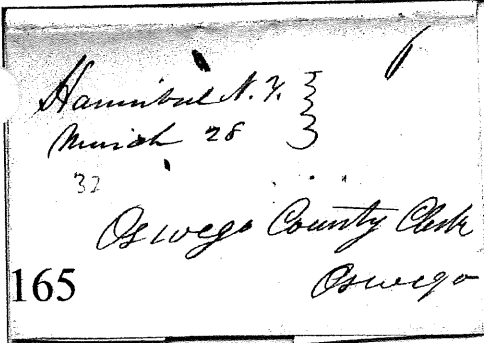 Hannibal N. Y.
March 28
32
Oswego County Clerk
Oswego
165